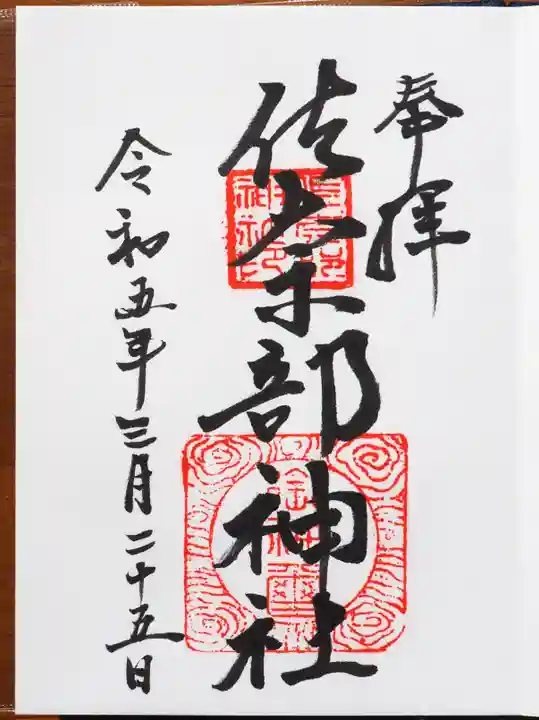 奉拝
佐奈部神社
令和五年三月二十五日